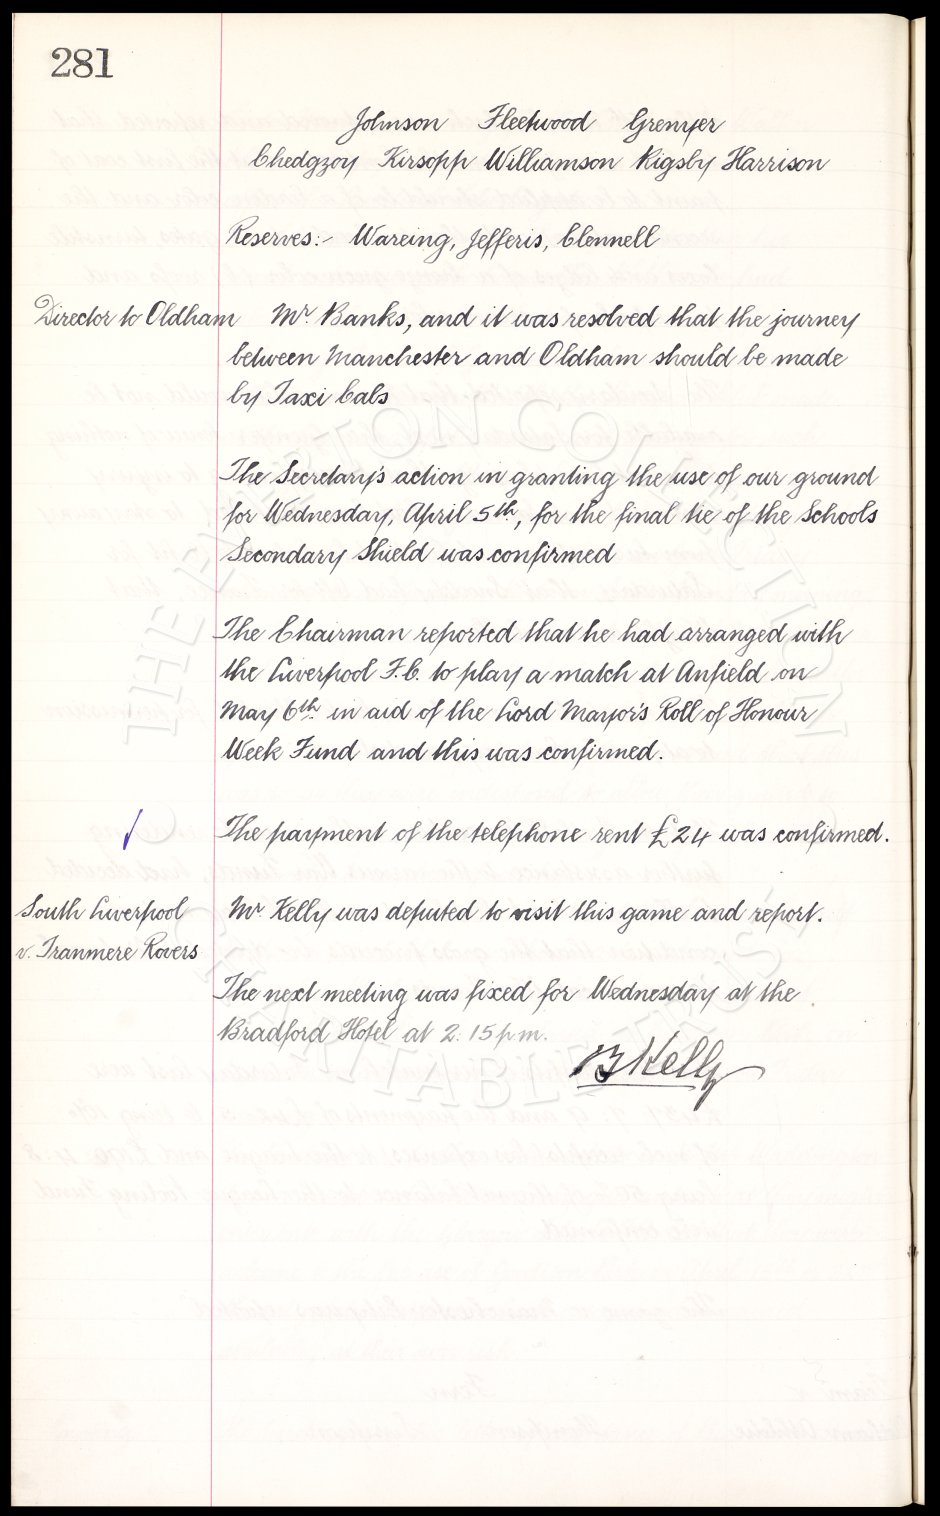 281
Johnson Fleetwood Grenyer
Chedgzoy Kirsopp Williamson Rigsby Harrison
Reserves:- Wareing, Jefferis, Clennell
Director to Oldham Mr. Banks, and it was resolved that the journey
between Manchester and Oldham should be made
by Taxi Cabs
The Secretary's action in granting the use of our ground
for Wednesday, April 5th, for the final tie of the Schools
Secondary Shield was confirmed
The Chairman reported that he had arranged with
the Liverpool F.C. to play a match at Anfield on
May 6th in aid of the Lord Mayor's Roll of Honour
Week Fund and this was confirmed.
The payment of the telephone rent £24 was confirmed.
South Liverpool Mr. Kelly was deputed to visit this game and report.
v. Tranmere Rovers
The next meeting was fixed for Wednesday at the
Bradford Hotel at 2.15 p.m.
B Kelly
THE EVERTON COLLECTION
CHARITABLE TRUST